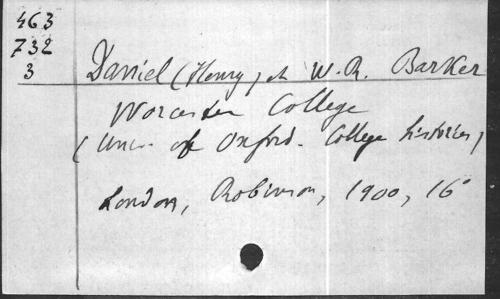 463
732
3
Daniel (Henry) et W. R. Barker
Worcester College
(Univ. of Oxford. College histories)
London, Robinson, 1900, 16°